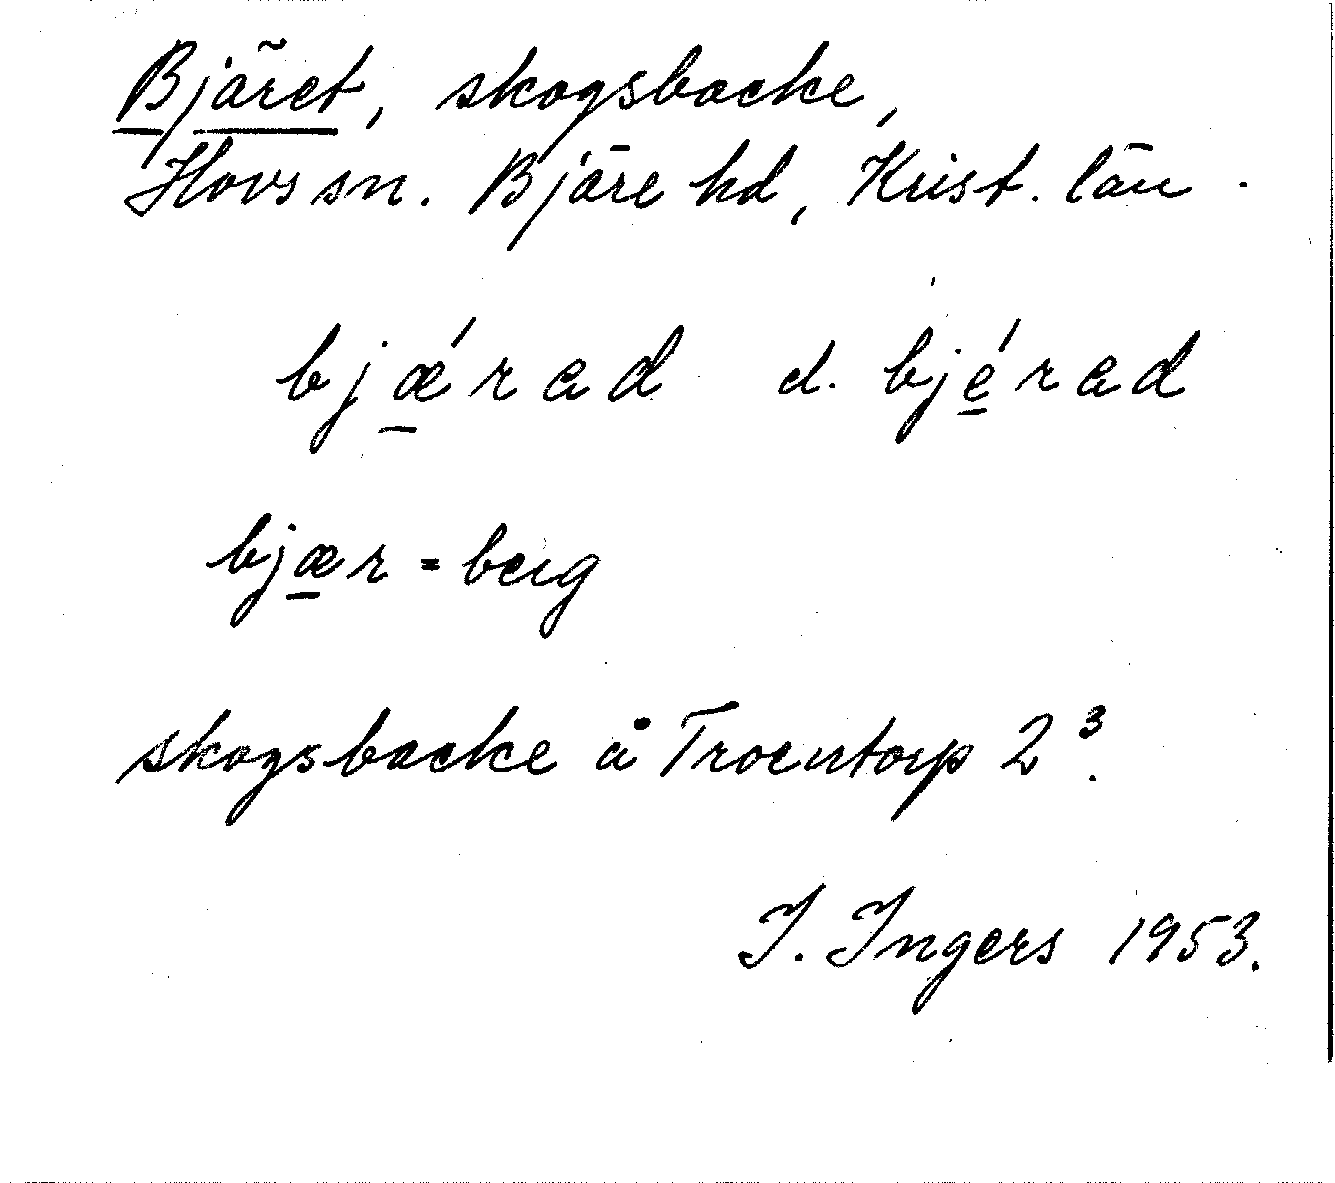 Bjäret, skogsbacke,
Hovs sn. Bjäre hd, Krist. län.
bjǽ̱rad d. bjé̱rad
bjæ̱r = berg
skogsbacke å Troentorp 2³.
I. Ingers 1953.